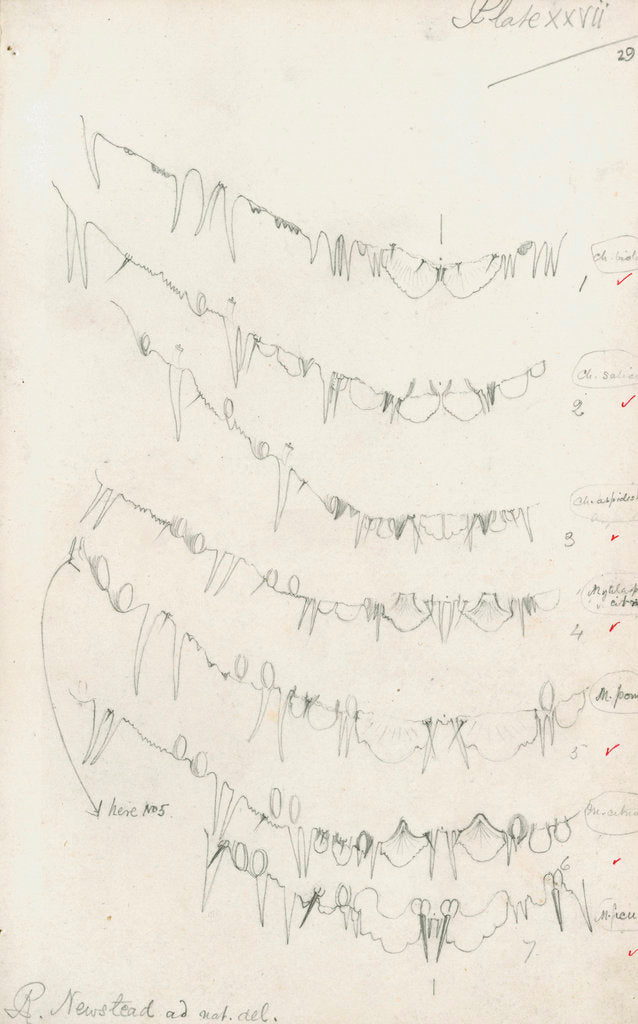 Plate XXVII
29
1
Ch. salic
2
Ch. aspidis
3
Mytilap
4
M. pom
5
here No 5.
6
7
R. Newstead ad nat. del.